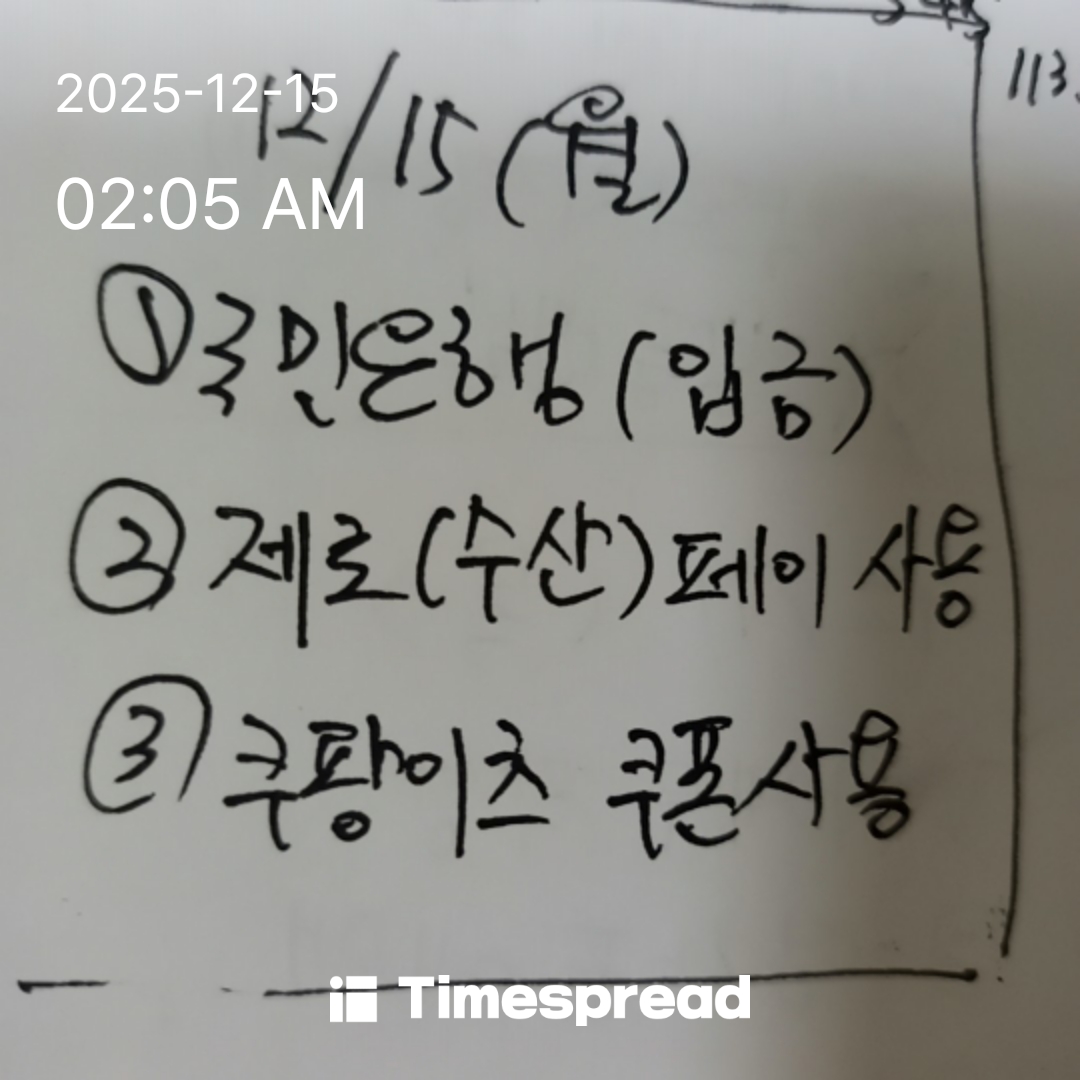 2025-12-15
12/15 (월)
113.
02:05 AM
① 국민은행 (입금)
② 제로(수산)페이 사용
③ 쿠팡이츠 쿠폰사용
Timespread